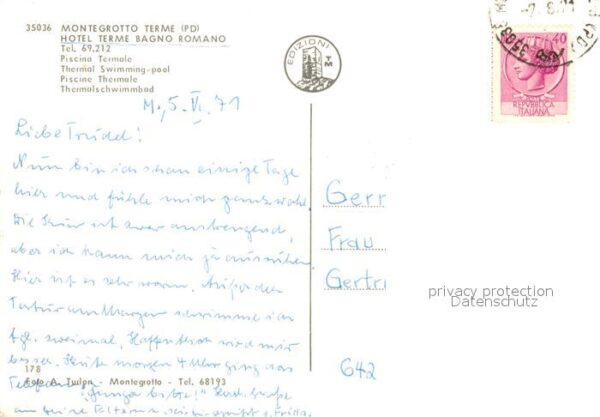 35036 MONTEGROTTO TERME (PD)
HOTEL TERME BAGNO ROMANO
Tel. 69.212
Piscina Termale
Thermal Swimming-pool
Piscine Thermale
Thermalschwimmbad
EDIZIONI
TM
40
REPVBBLICA
ITALIANA
M., 5. VI. 71
Liebe Trudel!
Nun bin ich schon einige Tage
hier und fühle mich ganz wohl.
Die Kur ist zwar anstrengend,
aber ich kann mich ja ausruhen.
Hier ist es sehr warm. Außer der
Tortur am Morgen schwimme ich
tgl. zweimal. Hoffentlich wird mir
besser. Heute morgen 4 Uhr ging das
178
Foto A. Turlon - Montegrotto - Tel. 68193
Telefon: "
bitte!" Herzl. Grüße
an Deine Eltern
Gerr
Frau
Gertr
642
privacy protection
Datenschutz